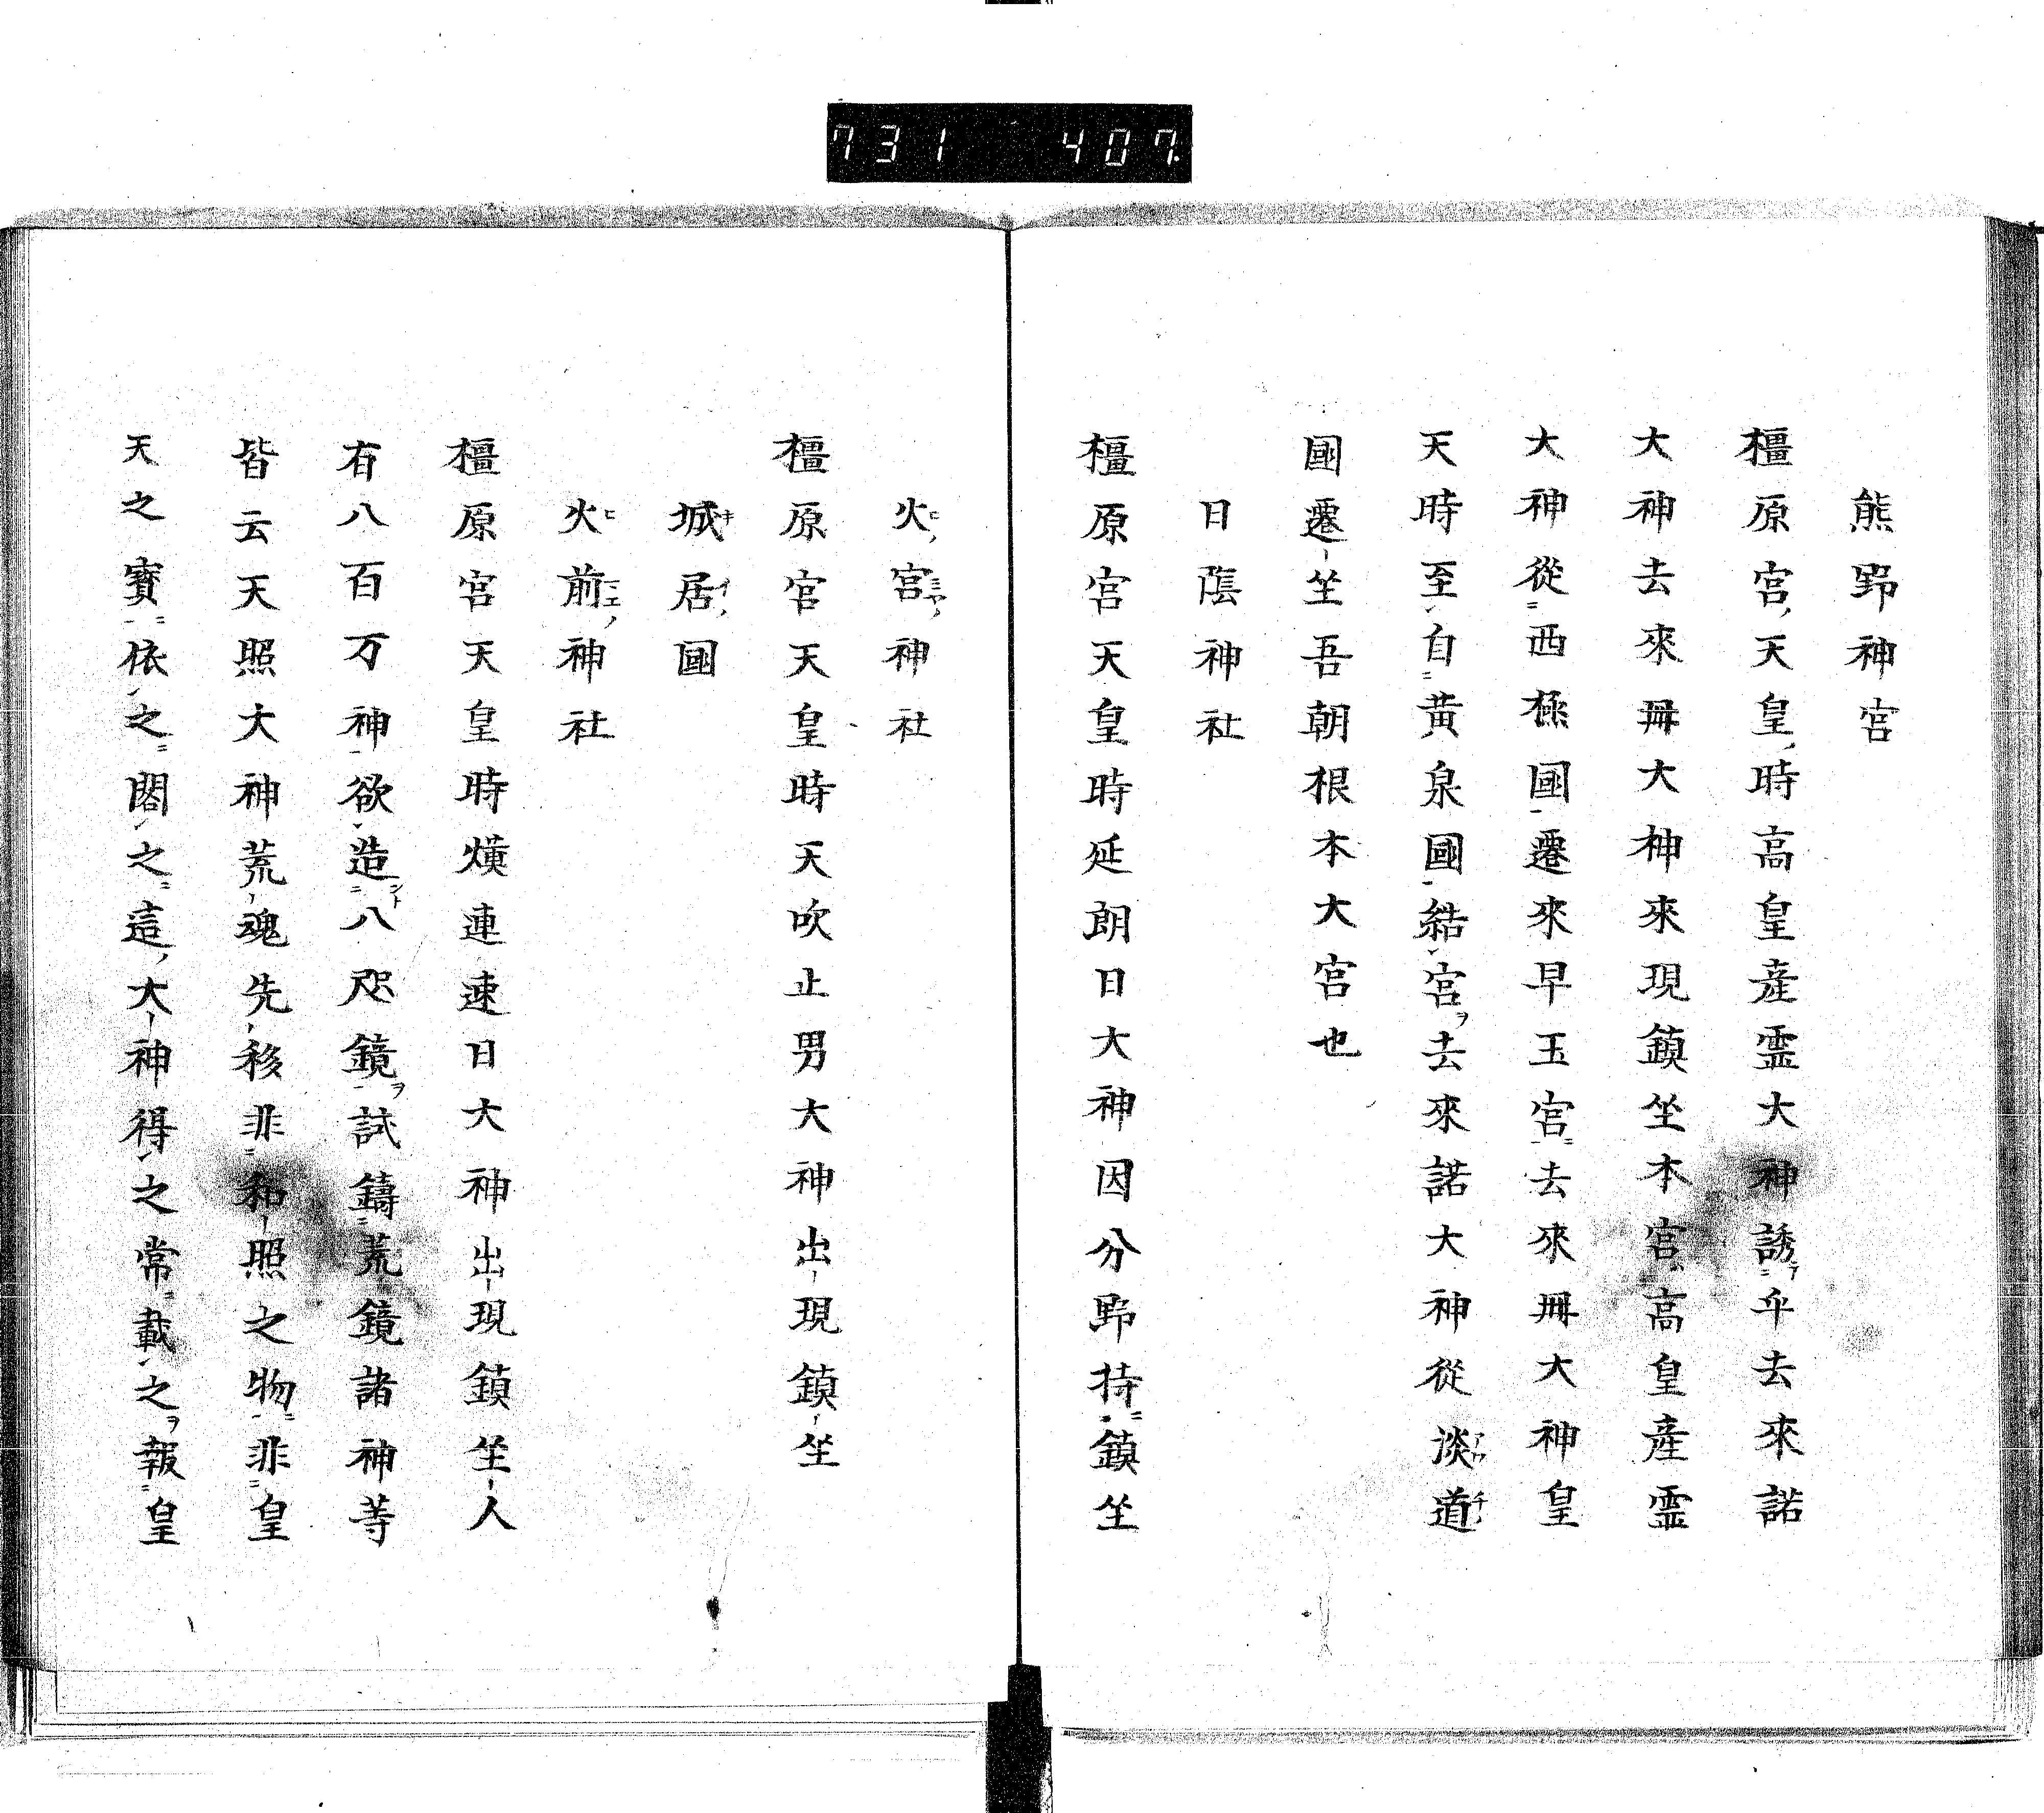 731 407
熊野神宮
橿原宮天皇時高皇産霊大神誘乎去來諾
大神去來冊大神來現鎮坐本宮高皇産霊
大神從西極國遷來早玉宮去來冊大神皇
天時至自黄泉國結宮ヲ去來諾大神從淡道
國遷坐吾朝根本大宮也
日蔭神社
橿原宮天皇時延朗日大神因分野持鎮坐
火宮神社
橿原宮天皇時天吹止男大神出現鎮坐
城居國
火前神社
橿原宮天皇時熿連速日大神出現鎮坐人
有八百万神欲造八咫鏡ヲ試鑄荒鏡諸神等
皆云天照大神荒魂先移非和照之物非皇
天之寶依之閣之這大神得之常載之ヲ報皇